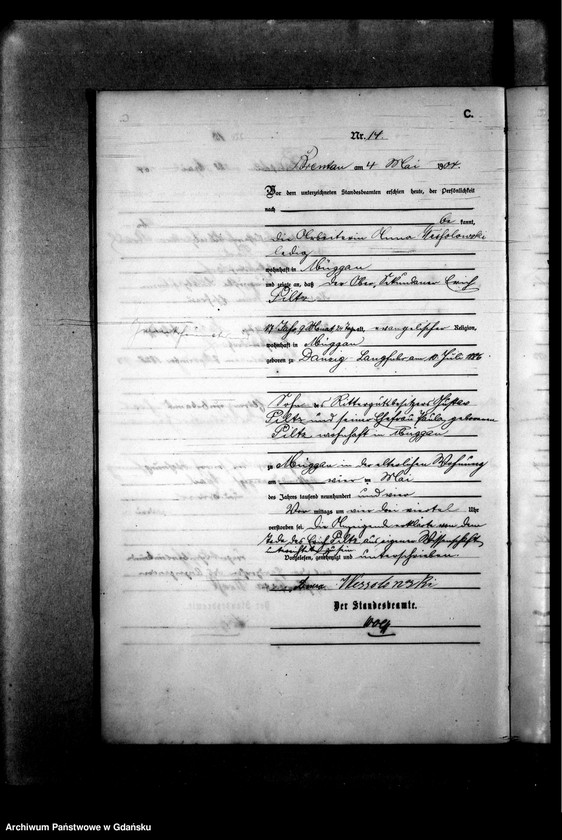 C.
Nr. 14.
Brentau am 4 Mai 1904.
Vor dem unterzeichneten Standesbeamten erschien heute, der Persönlichkeit
nach
be kannt,
die Arbeiterin Anna Wessolowski
ledig
wohnhaft in Müggau
und zeigte an, daß der Ober, Sekundaner Erich
Piltz
17 Jahr, 9 Monat alt, evangelischer Religion,
wohnhaft in Müggau
geboren zu Danzig-Langfuhr am 10 Juli 1886
Sohn des Rittergutsbesitzers
Piltz und seiner Ehefrau Paula, geborenen
Piltz, wohnhaft in Müggau
zu Müggau in der elterlichen Wohnung
am vier ten Mai
des Jahres tausend neunhundert und vier
Vor mittags um vier drei viertel Uhr
verstorben sei. Die Anzeigende erklärte von dem
Tode des Erich Piltz aus eigener Wissenschaft
unterrichtet zu sein
Vorgelesen, genehmigt und unterschrieben.
Anna Wessolowski
Der Standesbeamte.
Archiwum Państwowe w Gdańsku